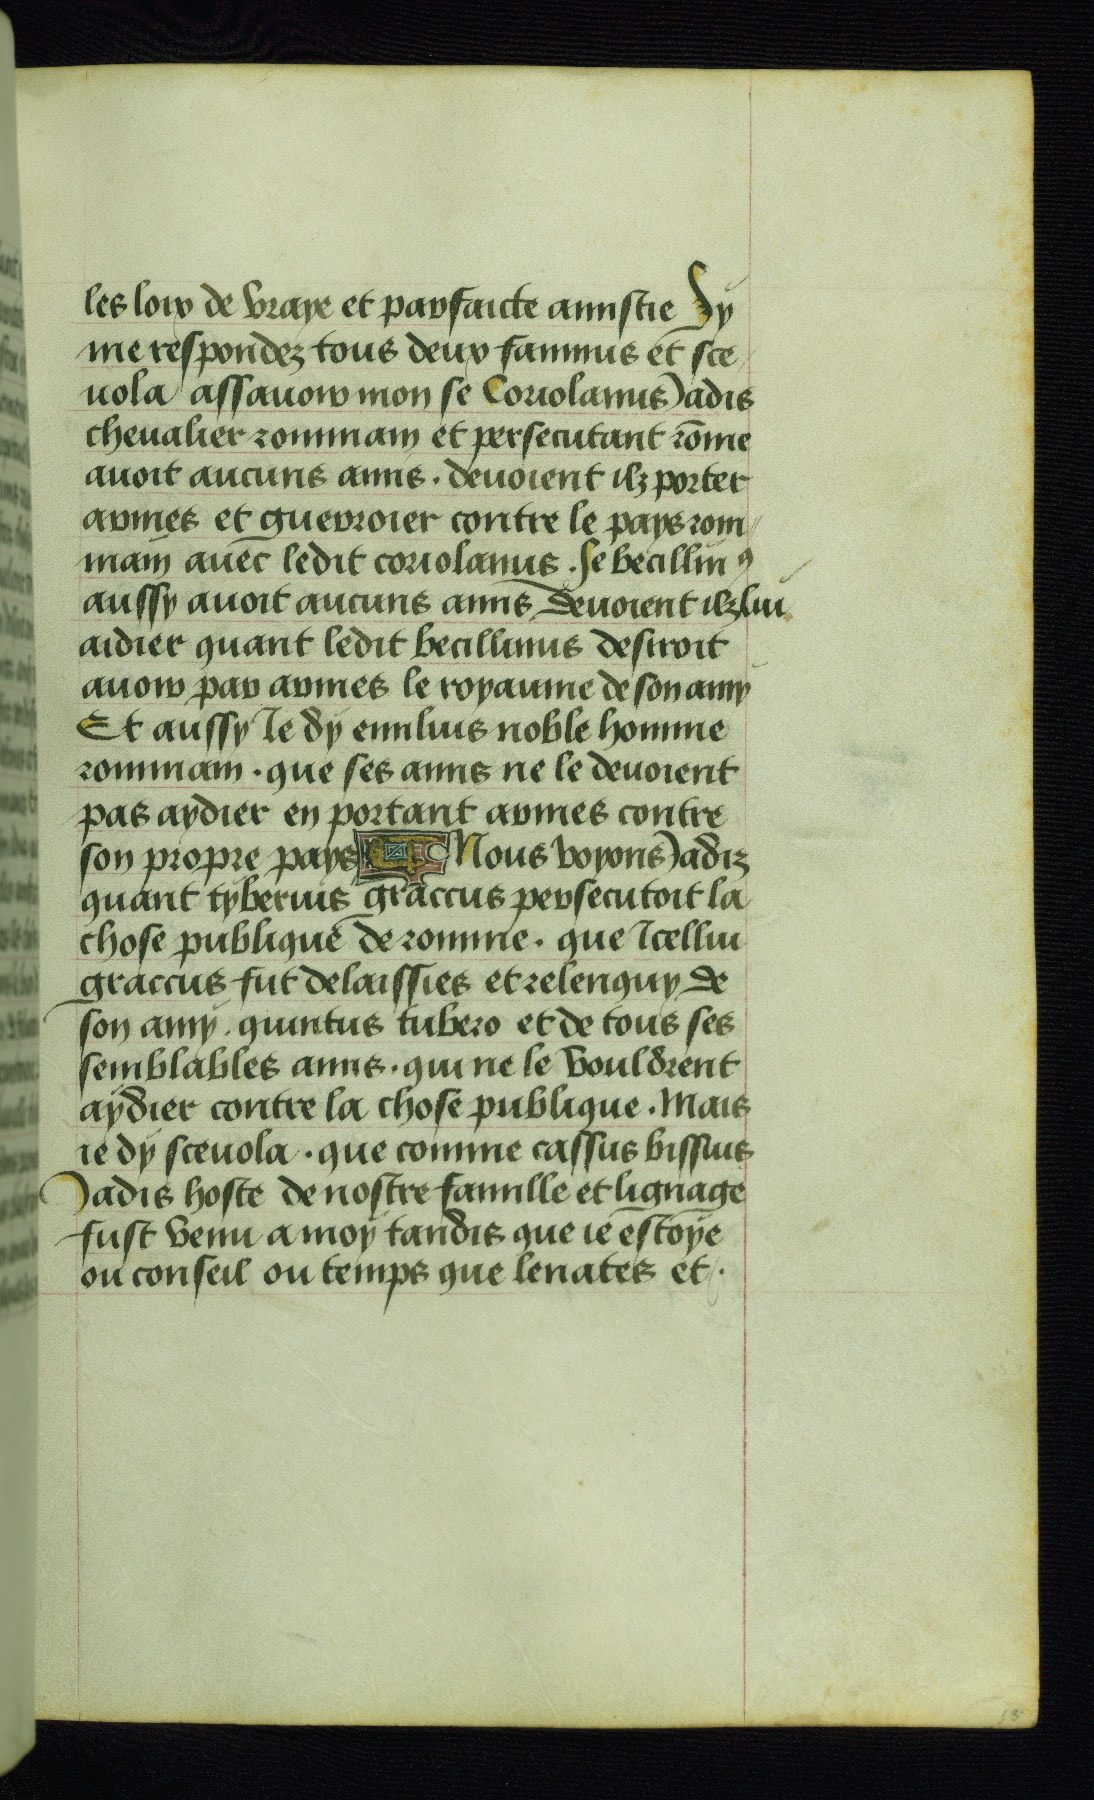 les loix de vraye et parfaicte amistie Dy
me respondez tous deux fannius et sce
uola assauoir mon se Coriolanus Jadis
cheualier rommain et persecutant rõme
auoit aucuns amis . deuoient ilz porter
armes et guerroier contre le pays rom
main auec ledit coriolanus . Se becillinꝰ
aussy auoit aucuns amis deuoient ilz lui
aidier quant ledit becillinus desiroit
auoir par armes le royaume de son amy
Et aussy Je dy emilius noble homme
rommain . que ses amis ne le deuoient
pas aydier en portant armes contre
son propre pays Nous voyons Jadiz
quant tyberius graccus persecutoit la
chose publique de romme . que Icellui
graccus fut delaissies et relenquy de
son amy . quintus tubero et de tous ses
semblables amis . qui ne le vouldrent
aydier contre la chose publique . Mais
ie dy sceuola . que comme cassus bissius
Jadis hoste de nostre famille et lignage
fust venu a moy tandis que ie estoye
ou conseil ou temps que lenates et .
58